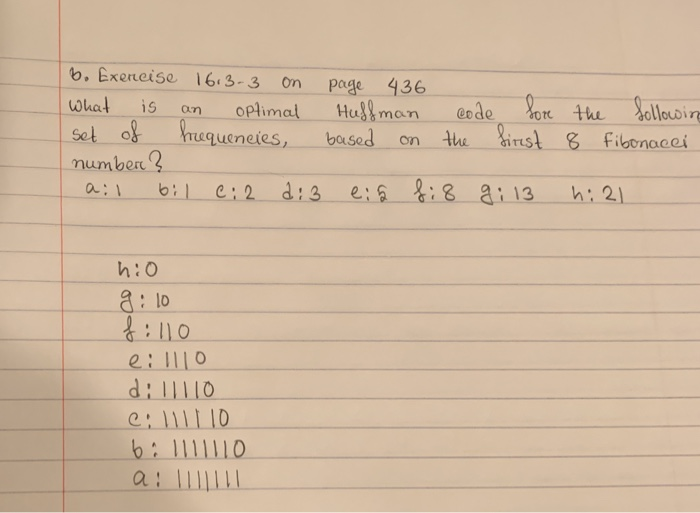 b. Exercise 16.3-3 on page 436
What is an optimal Huffman code for the followin
set of frequencies, based on the first 8 Fibonacci
number?
a:1 b:1 c:2 d:3 e:5 f:8 g:13 h:21
h:0
g:10
f:110
e:1110
d:11110
c:111110
b:1111110
a:1111111